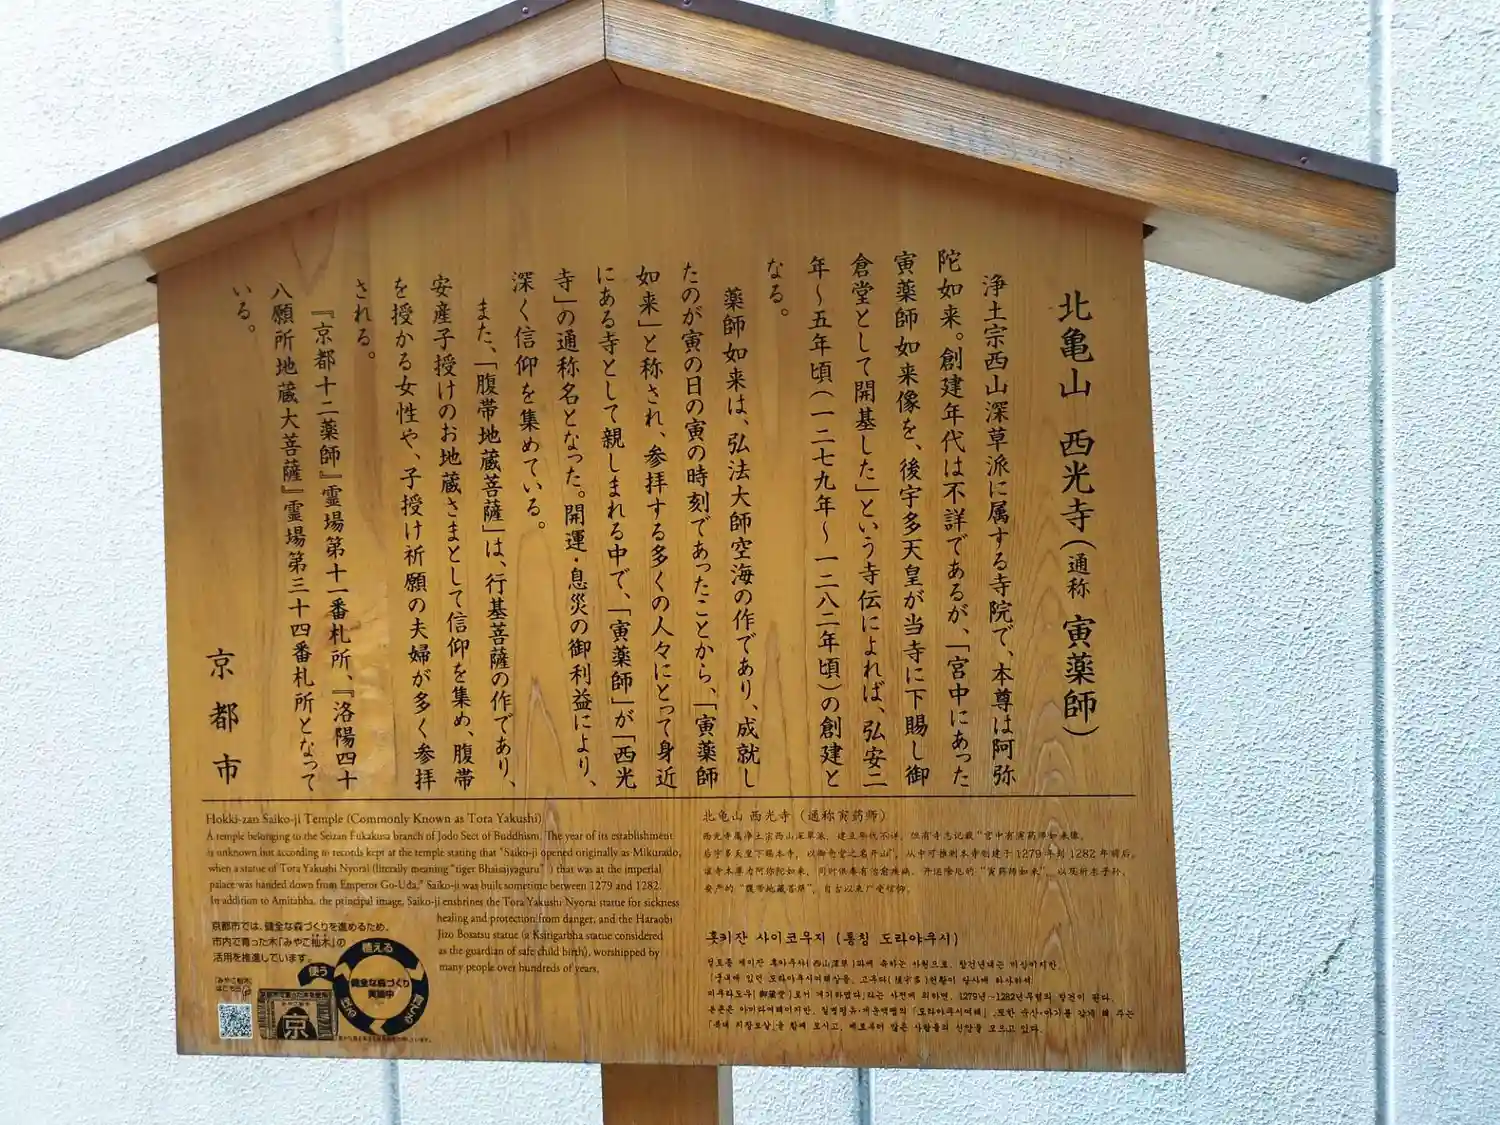 北亀山 西光寺（通称 寅薬師）
浄土宗西山深草派に属する寺院で、本尊は阿弥
陀如来。創建年代は不詳であるが、「宮中にあった
寅薬師如来像を、後宇多天皇が当寺に下賜し御
倉堂として開基した」という寺伝によれば、弘安二
年～五年頃（一二七九年～一二八二年頃）の創建と
なる。
薬師如来は、弘法大師空海の作であり、成就し
たのが寅の日の寅の時刻であったことから、「寅薬師
如来」と称され、参拝する多くの人々にとって身近
にある寺として親しまれる中で、「寅薬師」が「西光
寺」の通称名となった。開運・息災の御利益により、
深く信仰を集めている。
また、「腹帯地蔵菩薩」は、行基菩薩の作であり、
安産子授けのお地蔵さまとして信仰を集め、腹帯
を授かる女性や、子授け祈願の夫婦が多く参拝
される。
『京都十二薬師』霊場第十一番札所、『洛陽四十
八願所地蔵大菩薩』霊場第三十四番札所となって
いる。
京都市
Hokki-zan Saiko-ji Temple (Commonly Known as Tora Yakushi)
A temple belonging to the Seizan Fukakusa branch of Jodo Sect of Buddhism. The year of its establishment
is unknown but according to records kept at the temple stating that "Saiko-ji opened originally as Mikurado,
when a statue of Tora Yakushi Nyorai (literally meaning "tiger Bhaisajyaguru" ) that was at the imperial
palace was handed down from Emperor Go-Uda," Saiko-ji was built sometime between 1279 and 1282.
In addition to Amitabha, the principal image, Saiko-ji enshrines the Tora Yakushi Nyorai statue for sickness
healing and protection from danger, and the Haraobi
Jizo Bosatsu statue (a Ksitigarbha statue considered
as the guardian of safe child birth), worshipped by
many people over hundreds of years.
京都市では、健全な森づくりを進めるため、
市内で育った木「みやこ杣木」の
活用を推進しています。
「みやこ杣木」
はこちら
使う
植える
育てる
健全な森づくり
実施中
京
北亀山 西光寺（通称寅药师）
西光寺属净土宗西山深草派，建立年代不详，但有寺志记载"宫中有寅药师如来像，
后宇多天皇下赐本寺，以御仓堂之名开山"，从中可推测本寺创建于1279年到1282年前后。
홋키잔 사이코우지 (통칭 도라야쿠시)